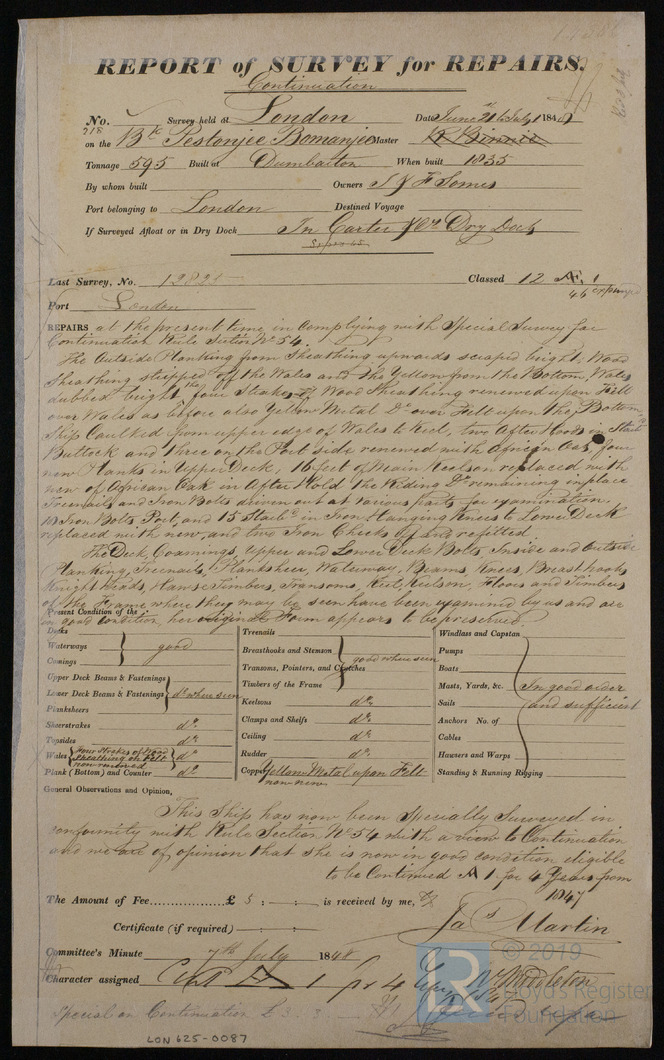 REPORT of SURVEY for REPAIRS.
Continuation
No. Survey held at London Date June 21 to July 1 1848
718 on the Bk Pestonjee Bomanjee Master R Binnie
Tonnage 595 Built at Dumbarton When built 1835
By whom built Owners J & F Somes
Port belonging to London Destined Voyage
If Surveyed Afloat or in Dry Dock In Carter & Co's Dry Dock
Last Survey, No. 12821 Classed 12 Æ. 1
46 expunged
Port London
REPAIRS at the present time in complying with Special Survey for
Continuation Rule Section No 54.
The Outside Planking from Sheathing upwards scraped bright, Wood
Sheathing stripped off the Wales and the Yellow from the Bottom, Wales
dubbed bright the four Strakes of Wood Sheathing renewed upon Felt
over Wales as before also Yellow Metal Do over Felt upon the Bottom
Ship Caulked from upper edge of Wales to Keel, two After Hoods in Starbd
Buttock and three on the Port side renewed with African Oak, four
new Planks in Upper Deck, 16 feet of Main Keelson replaced with
new of African Oak in After Hold the Riding Do remaining in place
Treenails and Iron Bolts driven out at various parts for examination.
10 Iron Bolts, Port, and 15 Starbd in Iron Hanging Knees to Lower Deck
replaced with new, and two Iron Chocks off and refitted
The Deck, Coamings, Upper and Lower Deck Bolts Inside and Outside
Planking, Treenails, Planksheer, Waterway, Beams, Knees, Breasthooks,
Knight Heads, Hawse Timbers, Transoms, Keel, Keelson, Floors and Timbers
of the Frame where they may be seen have been examined by us and are
in good condition, her original Form appears to be preserved.
Present Condition of the
Decks
Waterways good
Comings
Upper Deck Beams & Fastenings
Lower Deck Beams & Fastenings do where seen
Planksheers
Sheerstrakes do
Topsides do
Wales four Strakes of Wood Sheathing on Felt now renewed do
Plank (Bottom) and Counter do
Treenails
Breasthooks and Stemson
Transoms, Pointers, and Crutches good where seen
Timbers of the Frame
Keelsons do
Clamps and Shelfs do
Ceiling do
Rudder do
Copper Yellow Metal upon Felt
now new
Windlass and Capstan
Pumps
Boats
Masts, Yards, &c. In good order
Sails and sufficient
Anchors No. of
Cables
Hawsers and Warps
Standing & Running Rigging
General Observations and Opinion,
This Ship has now been Specially Surveyed in
conformity with Rule Section No 54 with a view to Continuation
and we are of opinion that she is now in good condition eligible
to be Continued A 1 for 4 Years from
1847
The Amount of Fee £ 5 : : is received by me,
Jas Martin
Certificate (if required) : :
Committee's Minute 7th July 1848
Character assigned Cont A 1 for 4 Years
Wm Middleton
Special on Continuation £ 3 . 3 . —
LON 625-0087
© 2019
Lloyd's Register
Foundation